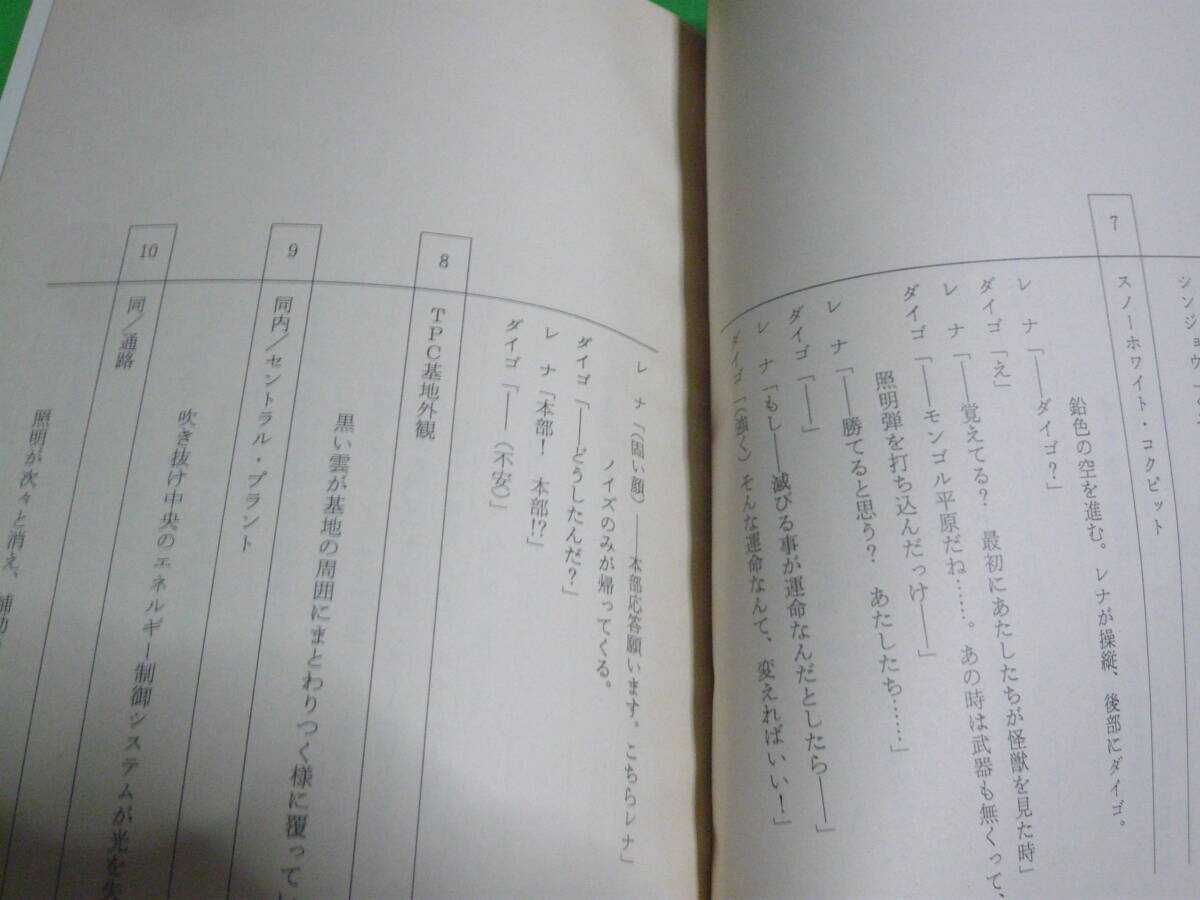 シンジョウ
7
スノーホワイト・コクピット
鉛色の空を進む。レナが操縦、後部にダイゴ。
レ　ナ「――ダイゴ？」
ダイゴ「え」
レ　ナ「――覚えてる？　最初にあたしたちが怪獣を見た時」
ダイゴ「――モンゴル平原だね……。あの時は武器も無くって、
照明弾を打ち込んだっけ――」
レ　ナ「――勝てると思う？　あたしたち……」
ダイゴ「――」
レ　ナ「もし――滅びる事が運命なんだとしたら――」
ダイゴ「（強く）そんな運命なんて、変えればいい！」
レ　ナ「（固い顔）――本部応答願います。こちらレナ」
ノイズのみが帰ってくる。
ダイゴ「――どうしたんだ？」
レ　ナ「本部！　本部!?」
ダイゴ「――（不安）」
8
ＴＰＣ基地外観
黒い雲が基地の周囲にまとわりつく様に覆って
9
同内／セントラル・プラント
吹き抜け中央のエネルギー制御システムが光を
10
同／通路
照明が次々と消え、補助